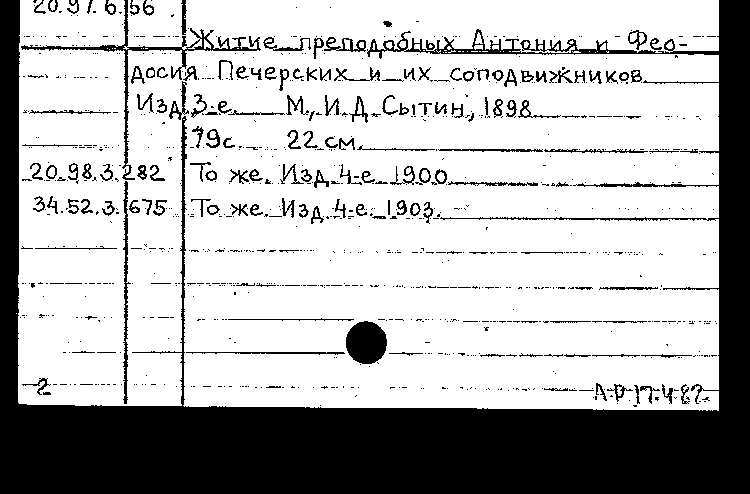 20.97.6.156
Житие преподобных Антония и Фео-
досия Печерских и их сподвижников.
Изд. 3-е. М., И.Д. Сытин, 1898
79с. 22 см.
20.98.3.282 То же. Изд. 4-е. 1900.
34.52.3.675 То же. Изд. 4-е. 1903.
2 АР 17.4.82.